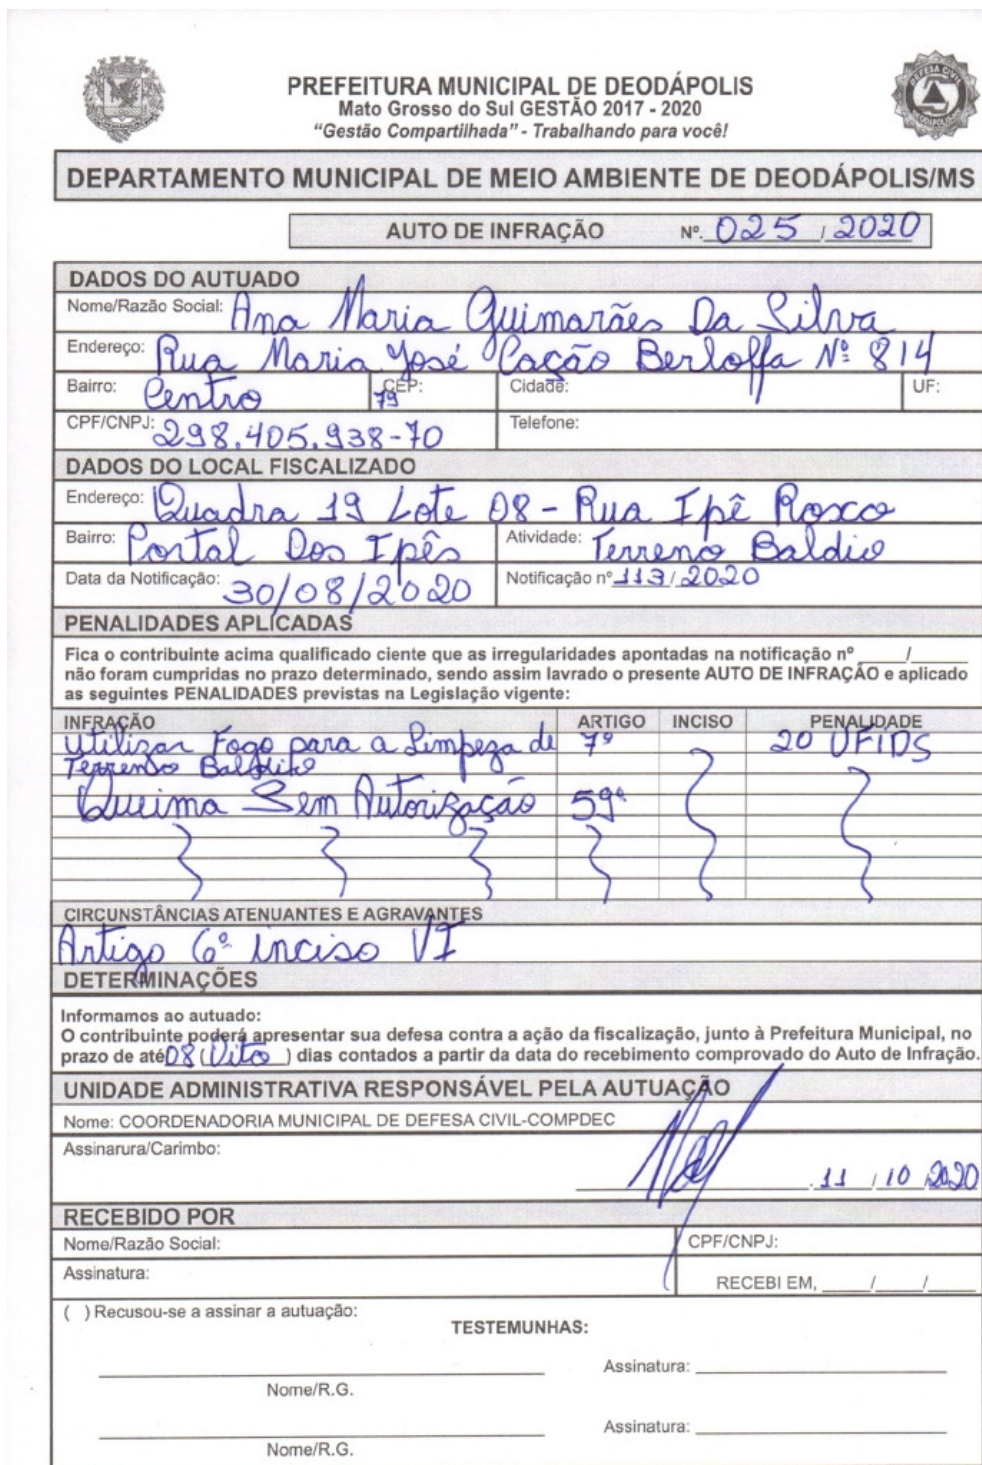 PREFEITURA MUNICIPAL DE DEODÁPOLIS
Mato Grosso do Sul GESTÃO 2017 - 2020
"Gestão Compartilhada" - Trabalhando para você!
DEFESA CIVIL
DEODÁPOLIS-MS
DEPARTAMENTO MUNICIPAL DE MEIO AMBIENTE DE DEODÁPOLIS/MS
AUTO DE INFRAÇÃO Nº. 025 / 2020
DADOS DO AUTUADO
Nome/Razão Social: Ana Maria Guimarães Da Silva
Endereço: Rua Maria José Cação Berloffa Nº 814
Bairro: Centro CEP: 79 Cidade: UF:
CPF/CNPJ: 298.405.938-70 Telefone:
DADOS DO LOCAL FISCALIZADO
Endereço: Quadra 19 Lote 08 - Rua Ipê Roxo
Bairro: Portal Dos Ipês Atividade: Terreno Baldio
Data da Notificação: 30/08/2020 Notificação nº 113/2020
PENALIDADES APLICADAS
Fica o contribuinte acima qualificado ciente que as irregularidades apontadas na notificação nº ____/____
não foram cumpridas no prazo determinado, sendo assim lavrado o presente AUTO DE INFRAÇÃO e aplicado
as seguintes PENALIDADES previstas na Legislação vigente:
INFRAÇÃO ARTIGO INCISO PENALIDADE
Utilizar Fogo para a Limpeza de 7º 20 UFIDS
Terreno Baldio
Queima Sem Autorização 59º
CIRCUNSTÂNCIAS ATENUANTES E AGRAVANTES
Artigo 6º inciso VI
DETERMINAÇÕES
Informamos ao autuado:
O contribuinte poderá apresentar sua defesa contra a ação da fiscalização, junto à Prefeitura Municipal, no
prazo de até 08 (Oito) dias contados a partir da data do recebimento comprovado do Auto de Infração.
UNIDADE ADMINISTRATIVA RESPONSÁVEL PELA AUTUAÇÃO
Nome: COORDENADORIA MUNICIPAL DE DEFESA CIVIL-COMPDEC
Assinarura/Carimbo:
11 / 10 / 2020
RECEBIDO POR
Nome/Razão Social: CPF/CNPJ:
Assinatura: RECEBI EM, ____/____/____
( ) Recusou-se a assinar a autuação:
TESTEMUNHAS:
Assinatura:
Nome/R.G.
Assinatura:
Nome/R.G.